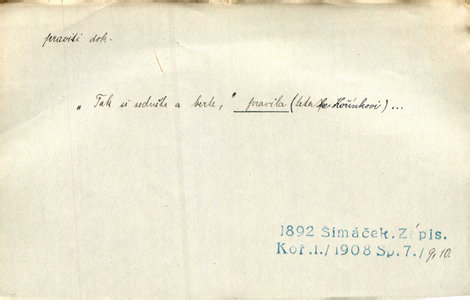 praviti dok.
„Tak si sedněte a berte,“ pravila (teta ke Kořínkovi)...
1892 Šimáček. Zápis.
Koř.I./1908 Sp.7./9,10.